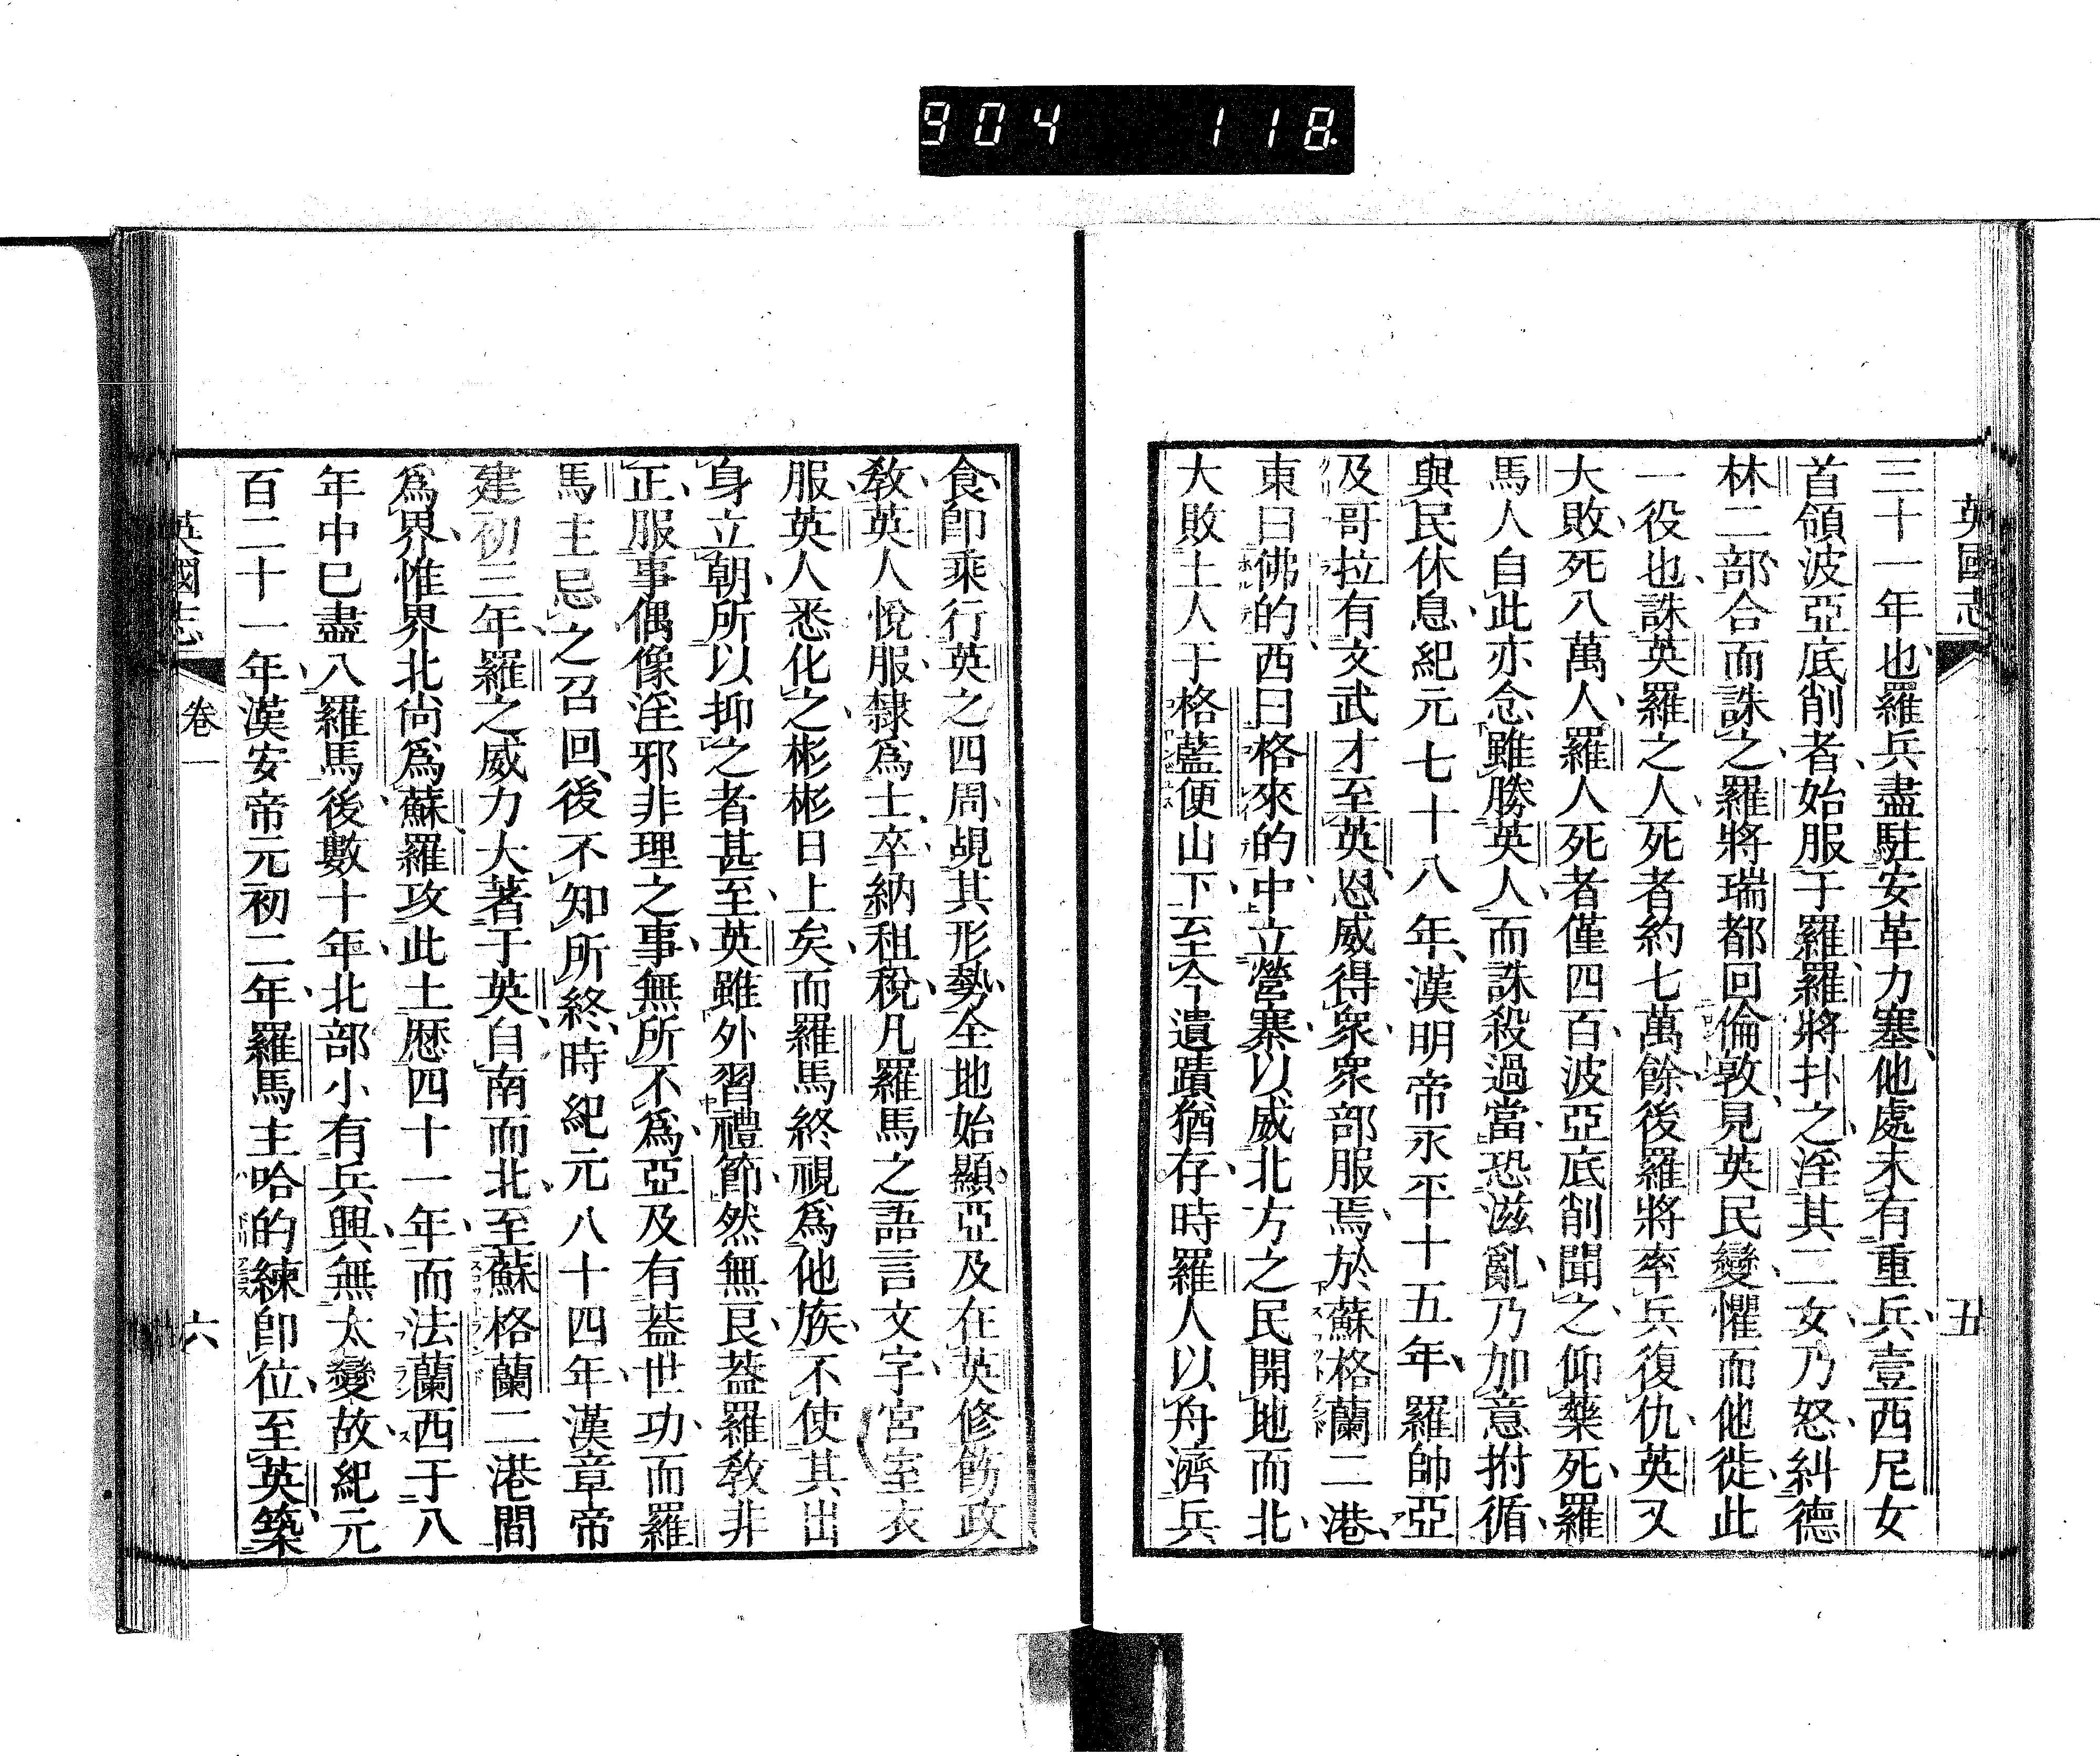 904 118.
英國志
五
三十一年也羅兵盡駐安革力塞他處未有重兵壹西尼女
首領波亞底削者始服于羅羅將扑之淫其二女乃怒糾德
林二部合而誅之羅將瑞都回倫敦見英民變懼而他徙此
一役也誅英羅之人死者約七萬餘後羅將率兵復仇英又
大敗死八萬人羅人死者僅四百波亞底削聞之仰藥死羅
馬人自此亦念雖勝英人而誅殺過當恐滋亂乃加意拊循
與民休息紀元七十八年漢明帝永平十五年羅帥亞
及哥拉有文武才至英恩威得衆衆部服焉於蘇格蘭二港
東曰佛的西曰格來的中立營寨以威北方之民開地而北
大敗土人于格藍便山下至今遺蹟猶存時羅人以舟濟兵
食卽乘行英之四周覘其形勢全地始顯亞及在英修飭政
敎英人悅服隸爲士卒納租稅凡羅馬之語言文字宮室衣
服英人悉化之彬彬日上矣而羅馬終視爲他族不使其出
身立朝所以抑之者甚至英雖外習禮節然無良葢羅敎非
正服事偶像淫邪非理之事無所不爲亞及有葢世功而羅
馬主忌之召回後不知所終時紀元八十四年漢章帝
建初三年羅之威力大著于英自南而北至蘇格蘭二港間
爲界惟界北尙爲蘇羅攻此土歷四十一年而法蘭西于八
年中已盡入羅馬後數十年北部小有兵興無太變故紀元
百二十一年漢安帝元初二年羅馬主哈的練卽位至英築
英國志
卷一
六